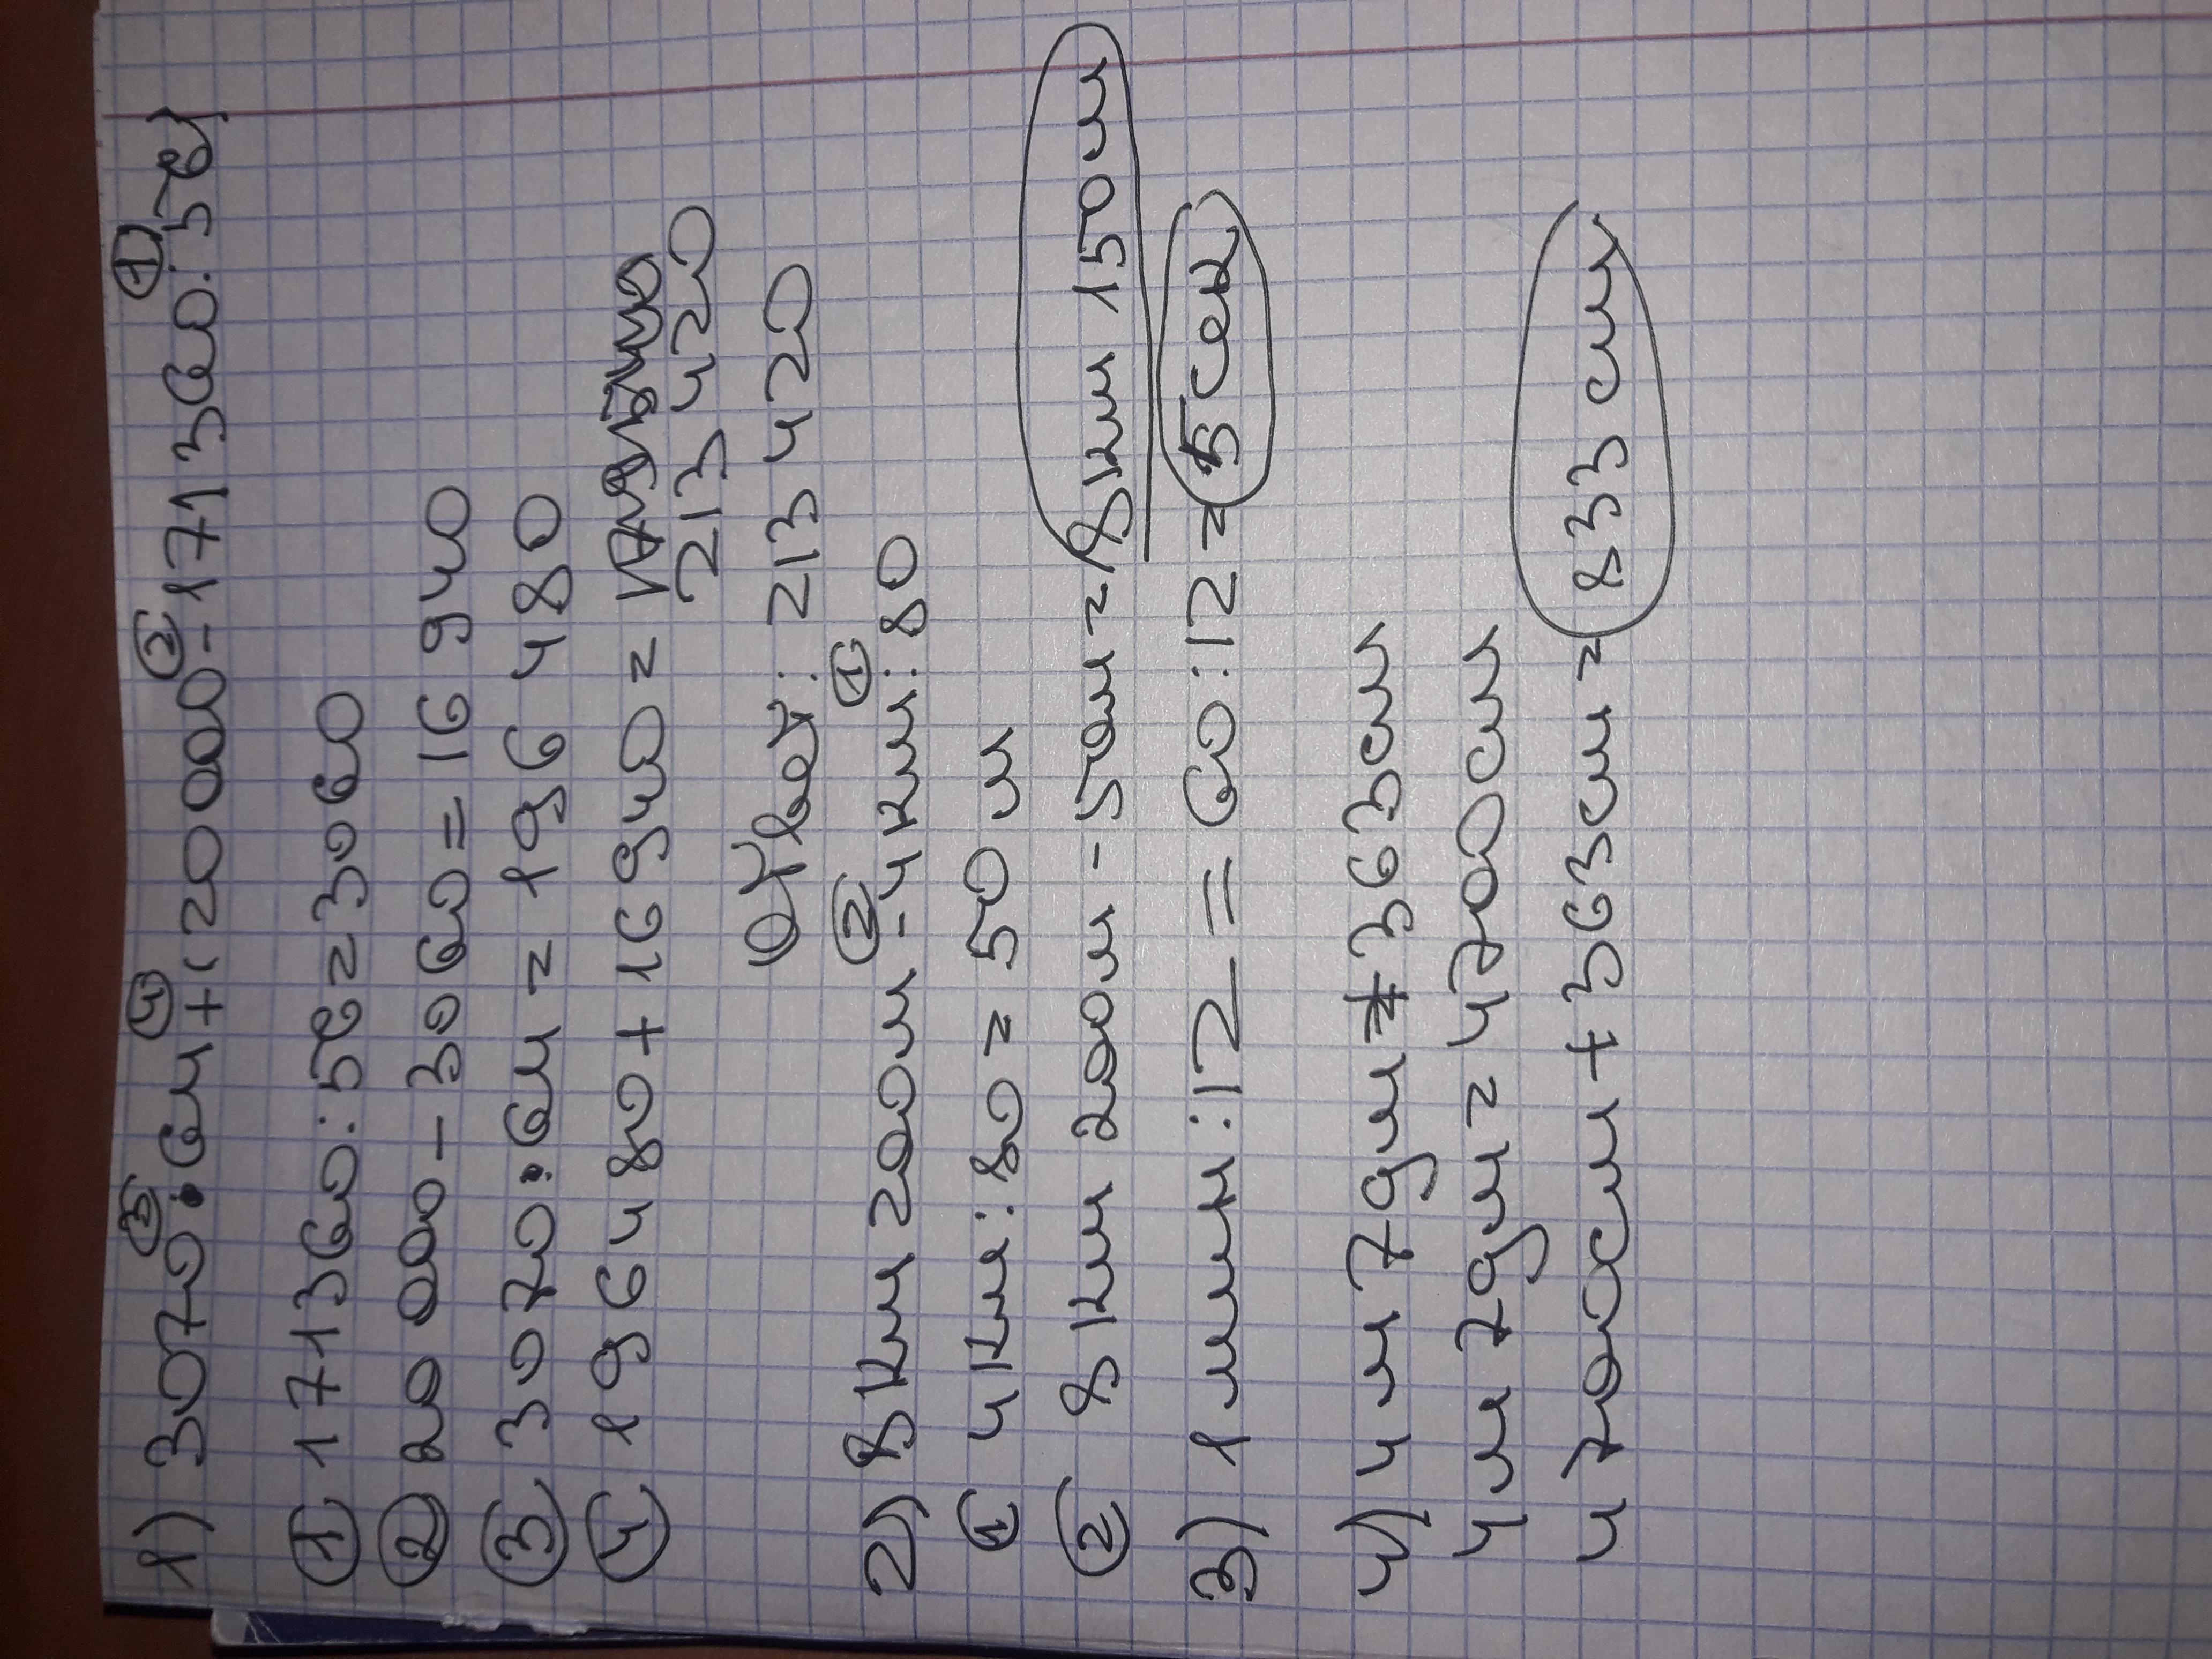 1) 3070 · 64 + (20 000 - 171360 : 56)
① 171360 : 56 = 3060
② 20 000 - 3060 = 16 940
③ 3070 · 64 = 196 480
④ 196480 + 16940 =
213 420
Ответ: 213 420
2) 8 км 200 м - 4 км : 80
① 4 км : 80 = 50 м
② 8 км 200 м - 50 м = 8 км 150 м
3) 1 мин : 12 = 60 : 12 = 5 сек
4) 4 м 7 дм + 363 см
4 м 7 дм = 4700 см
4700 см + 363 см = 833 см